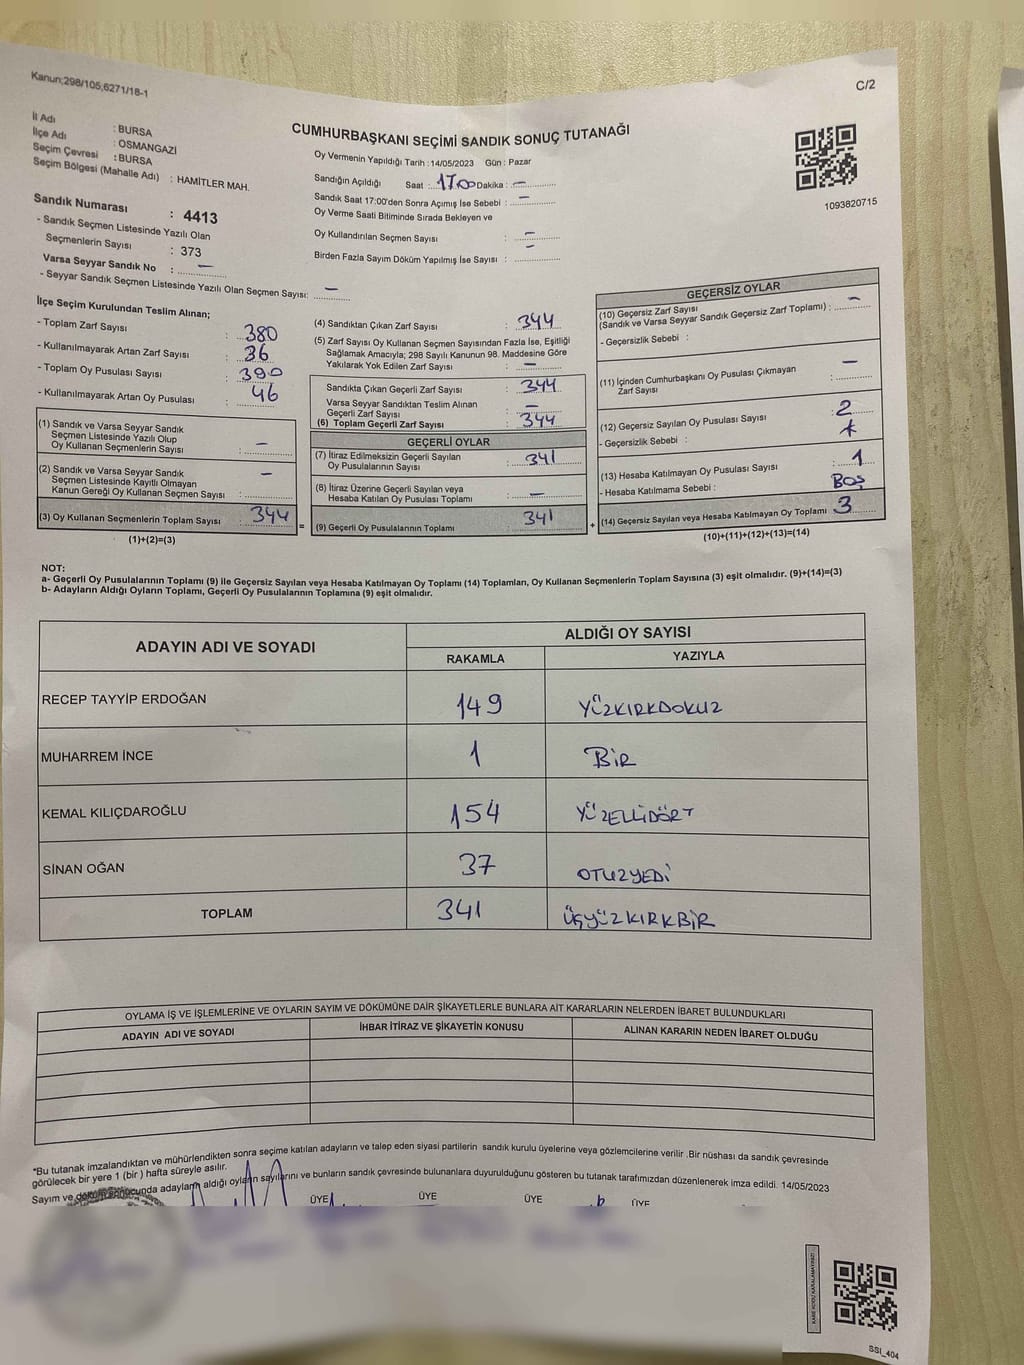 Kanun;298/105;6271/18-1
C/2
İl Adı : BURSA
İlçe Adı : OSMANGAZİ
Seçim Çevresi : BURSA
Seçim Bölgesi (Mahalle Adı) : HAMİTLER MAH.
Sandık Numarası : 4413
- Sandık Seçmen Listesinde Yazılı Olan
Seçmenlerin Sayısı : 373
Varsa Seyyar Sandık No : —
- Seyyar Sandık Seçmen Listesinde Yazılı Olan Seçmen Sayısı: —
CUMHURBAŞKANI SEÇİMİ SANDIK SONUÇ TUTANAĞI
Oy Vermenin Yapıldığı Tarih : 14/05/2023 Gün : Pazar
Sandığın Açıldığı Saat : 17:00 Dakika : —
Sandık Saat 17:00'den Sonra Açımış İse Sebebi : —
Oy Verme Saati Bitiminde Sırada Bekleyen ve
Oy Kullandırılan Seçmen Sayısı : —
Birden Fazla Sayım Döküm Yapılmış İse Sayısı : —
1093820715
İlçe Seçim Kurulundan Teslim Alınan;
- Toplam Zarf Sayısı : 380
- Kullanılmayarak Artan Zarf Sayısı : 36
- Toplam Oy Pusulası Sayısı : 390
- Kullanılmayarak Artan Oy Pusulası : 46
(1) Sandık ve Varsa Seyyar Sandık
Seçmen Listesinde Yazılı Olup
Oy Kullanan Seçmenlerin Sayısı : —
(2) Sandık ve Varsa Seyyar Sandık
Seçmen Listesinde Kayıtlı Olmayan
Kanun Gereği Oy Kullanan Seçmen Sayısı : —
(3) Oy Kullanan Seçmenlerin Toplam Sayısı : 344
(1)+(2)=(3)
=
(4) Sandıktan Çıkan Zarf Sayısı : 344
(5) Zarf Sayısı Oy Kullanan Seçmen Sayısından Fazla İse, Eşitliği
Sağlamak Amacıyla; 298 Sayılı Kanunun 98. Maddesine Göre
Yakılarak Yok Edilen Zarf Sayısı : —
Sandıkta Çıkan Geçerli Zarf Sayısı : 344
Varsa Seyyar Sandıktan Teslim Alınan
Geçerli Zarf Sayısı : —
(6) Toplam Geçerli Zarf Sayısı : 344
GEÇERLİ OYLAR
(7) İtiraz Edilmeksizin Geçerli Sayılan
Oy Pusulalarının Sayısı : 341
(8) İtiraz Üzerine Geçerli Sayılan veya
Hesaba Katılan Oy Pusulası Toplamı : —
(9) Geçerli Oy Pusulalarının Toplamı : 341
+
GEÇERSİZ OYLAR
(10) Geçersiz Zarf Sayısı
(Sandık ve Varsa Seyyar Sandık Geçersiz Zarf Toplamı) : —
- Geçersizlik Sebebi :
(11) İçinden Cumhurbaşkanı Oy Pusulası Çıkmayan
Zarf Sayısı : —
(12) Geçersiz Sayılan Oy Pusulası Sayısı : 2
- Geçersizlik Sebebi : *
(13) Hesaba Katılmayan Oy Pusulası Sayısı : 1
- Hesaba Katılmama Sebebi : BOŞ
(14) Geçersiz Sayılan veya Hesaba Katılmayan Oy Toplamı 3
(10)+(11)+(12)+(13)=(14)
NOT:
a- Geçerli Oy Pusulalarının Toplamı (9) ile Geçersiz Sayılan veya Hesaba Katılmayan Oy Toplamı (14) Toplamları, Oy Kullanan Seçmenlerin Toplam Sayısına (3) eşit olmalıdır. (9)+(14)=(3)
b- Adayların Aldığı Oyların Toplamı, Geçerli Oy Pusulalarının Toplamına (9) eşit olmalıdır.
ADAYIN ADI VE SOYADI ALDIĞI OY SAYISI
RAKAMLA YAZIYLA
RECEP TAYYİP ERDOĞAN 149 YÜZKIRKDOKUZ
MUHARREM İNCE 1 BİR
KEMAL KILIÇDAROĞLU 154 YÜZELLİDÖRT
SİNAN OĞAN 37 OTUZYEDİ
TOPLAM 341 ÜÇYÜZKIRKBİR
OYLAMA İŞ VE İŞLEMLERİNE VE OYLARIN SAYIM VE DÖKÜMÜNE DAİR ŞİKAYETLERLE BUNLARA AİT KARARLARIN NELERDEN İBARET BULUNDUKLARI
ADAYIN ADI VE SOYADI İHBAR İTİRAZ VE ŞİKAYETİN KONUSU ALINAN KARARIN NEDEN İBARET OLDUĞU
*Bu tutanak imzalandıktan ve mühürlendikten sonra seçime katılan adayların ve talep eden siyasi partilerin sandık kurulu üyelerine veya gözlemcilerine verilir .Bir nüshası da sandık çevresinde
görülecek bir yere 1 (bir ) hafta süreyle asılır.
Sayım ve döküm sonucunda adayların aldığı oyların sayılarını ve bunların sandık çevresinde bulunanlara duyurulduğunu gösteren bu tutanak tarafımızdan düzenlenerek imza edildi. 14/05/2023
ÜYE ÜYE ÜYE ÜYE
SSİ_404